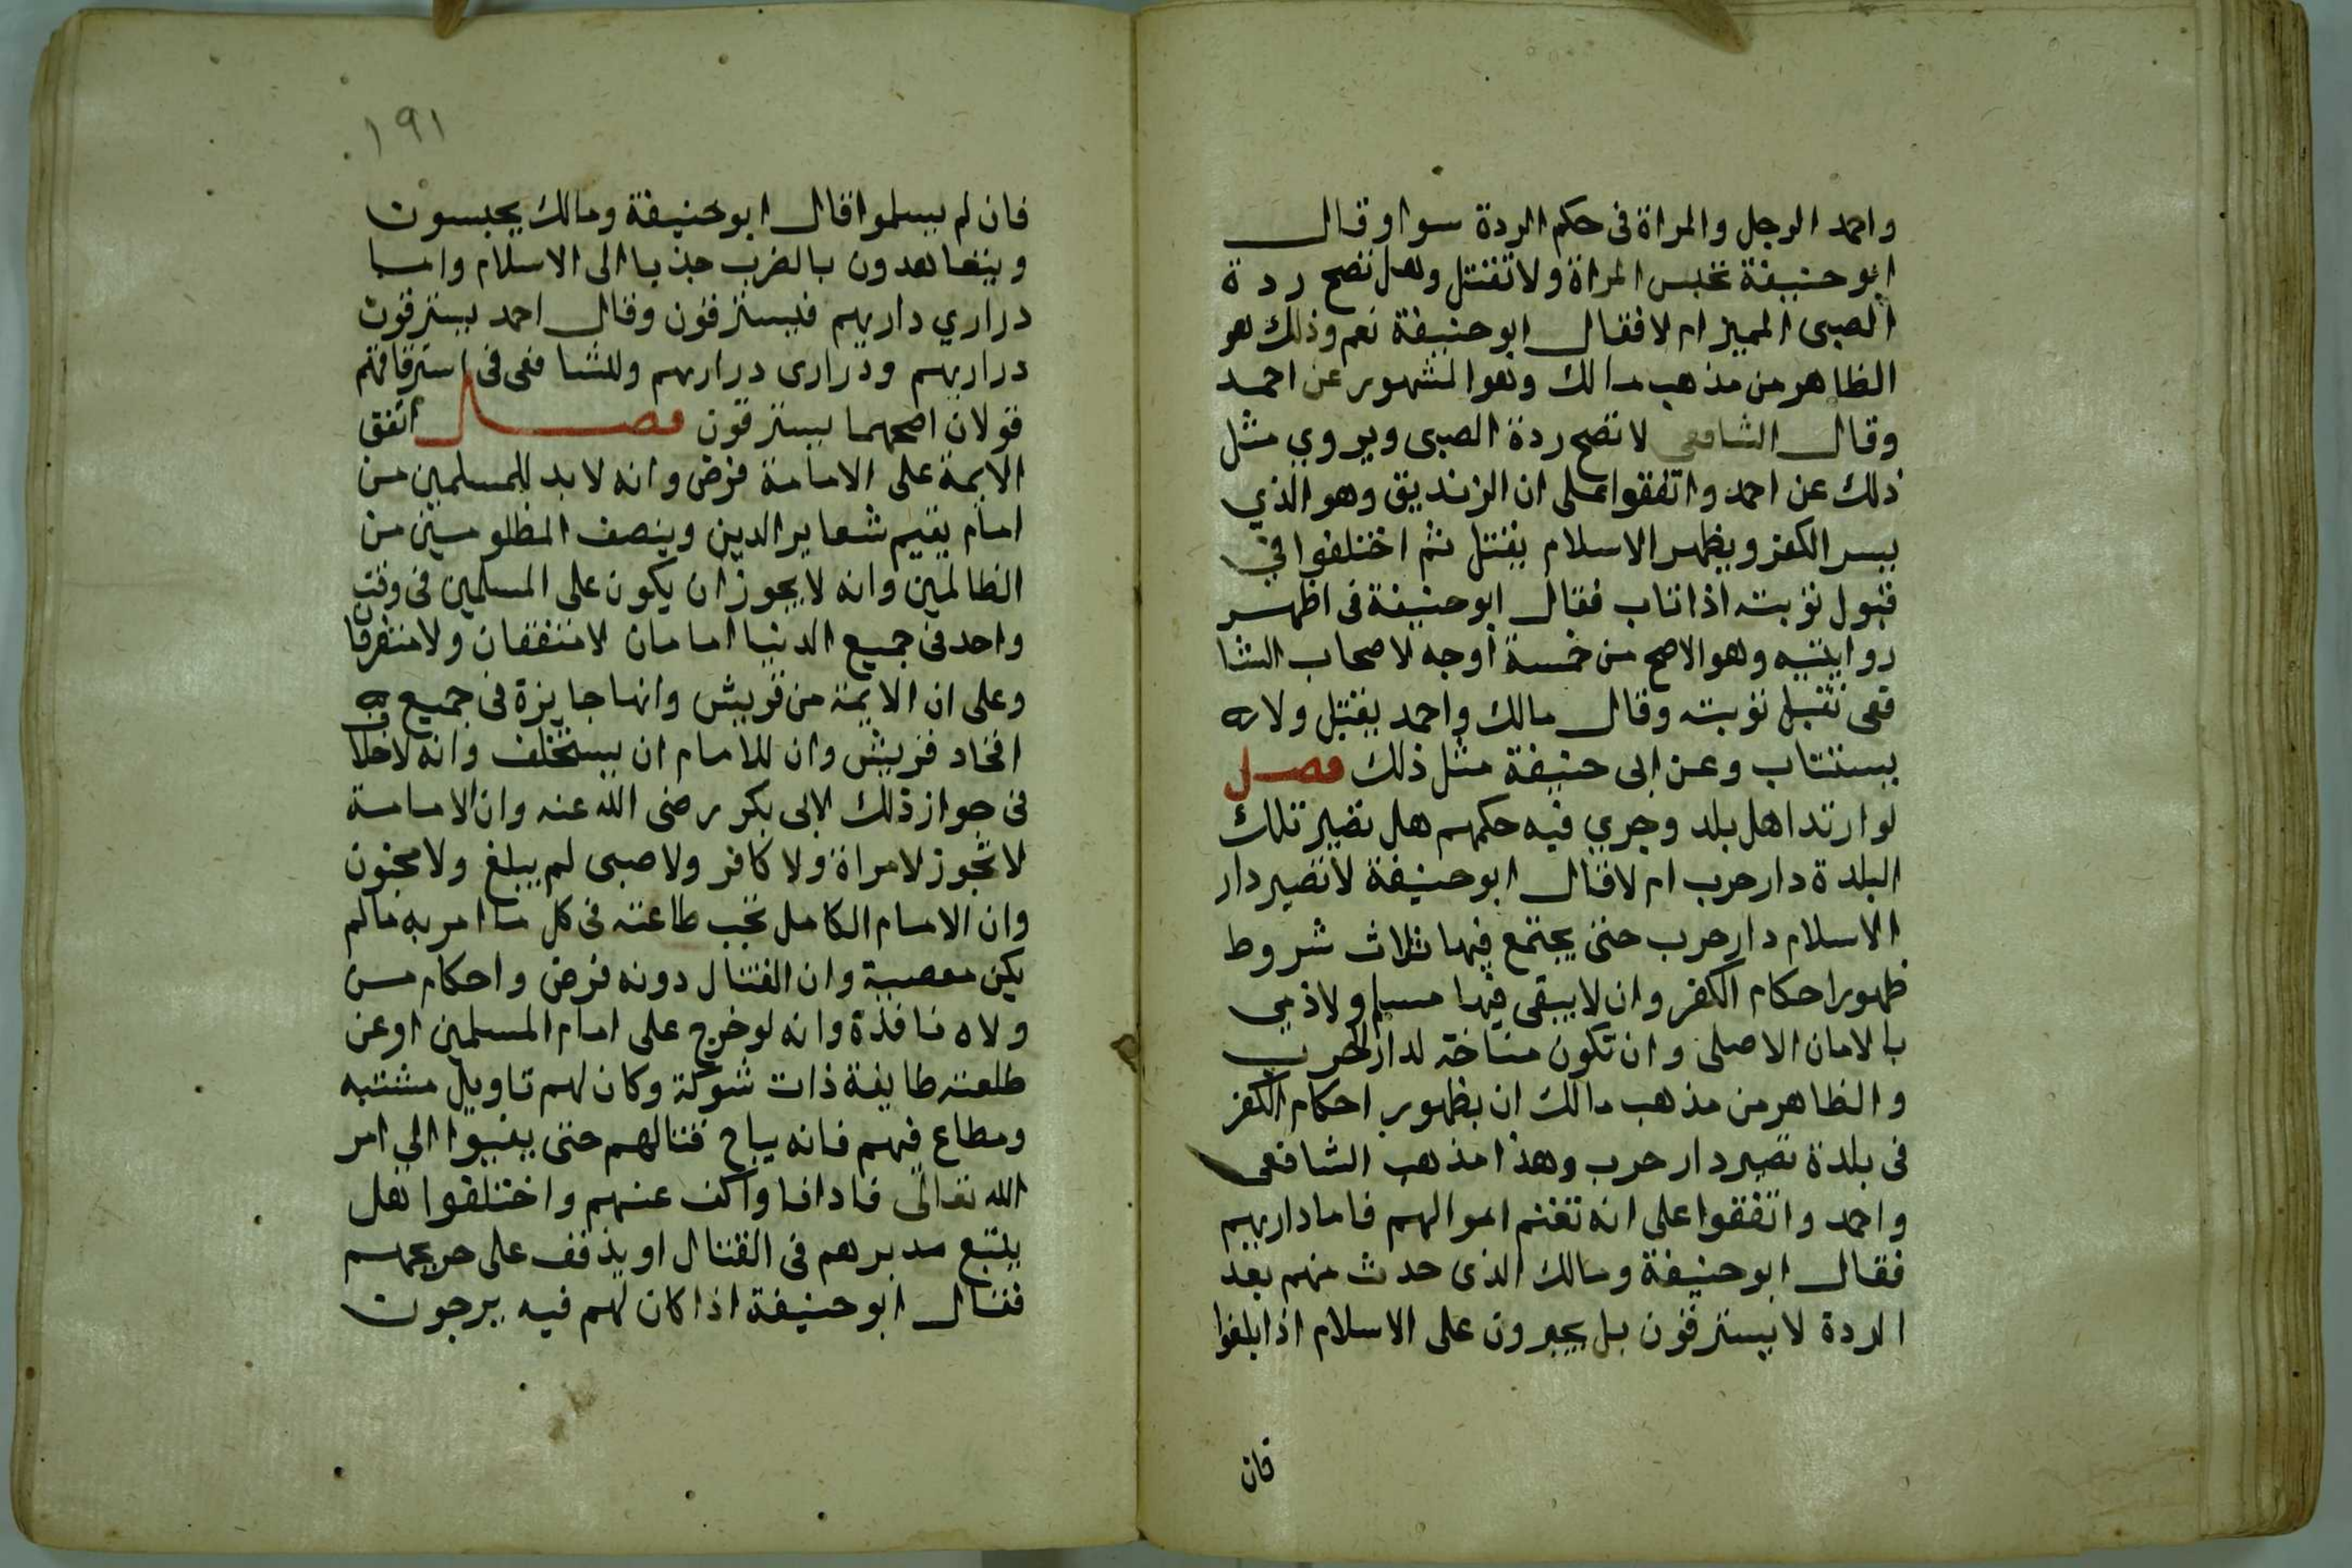 واحمد الرجل والمراة فى حكم الردة سوا وقال
ابو حنيفة تحبس المراة ولا تقتل وهل تصح ردة
الصبى المميز ام لا فقال ابو حنيفة نعم وذلك هو
الظاهر من مذهب مالك وهو المشهور عن احمد
وقال الشافعى لا تصح ردة الصبى ويروي مثل
ذلك عن احمد واتفقوا على ان الزنديق وهو الذي
يسر الكفر ويظهر الاسلام يقتل ثم اختلفوا في
قبول توبته اذا تاب فقال ابو حنيفة فى اظهر
روايتيه وهو الاصح من خمسة اوجه لاصحاب الشا
فعى تقبل توبته وقال مالك واحمد يقتل ولا
يستتاب وعن ابى حنيفة مثل ذلك فصل
لو ارتد اهل بلد وجري فيه حكمهم هل تصير تلك
البلدة دار حرب ام لا قال ابو حنيفة لا تصير دار
الاسلام دار حرب حتى يجتمع فيها ثلاث شروط
ظهور احكام الكفر وان لا يبقى فيها مسلم ولا ذمي
بالامان الاصلى وان تكون متاخة لدار الحرب
والظاهر من مذهب مالك ان بظهور احكام الكفر
فى بلدة تصير دار حرب وهذا مذهب الشافعى
واحمد واتفقوا على انه تغنم اموالهم فاما داريهم
فقال ابو حنيفة ومالك الذى حدث منهم بعد
الردة لا يسترقون بل يجبرون على الاسلام اذا بلغوا
فان
١٩١
فان لم يسلموا قال ابو حنيفة ومالك يحبسون
ويتعاهدون بالضرب جذبا الى الاسلام واما
دراري داريهم فيسترقون وقال احمد يسترقون
دراريهم ودرارى دراريهم وللشافعى فى استرقاقهم
قولان اصحهما يسترقون فصل اتفق
الايمة على الامامة فرض وانه لا بد للمسلمين من
امام يقيم شعاير الدين وينصف المظلومين من
الظالمين وانه لا يجوز ان يكون على المسلمين فى وقت
واحد فى جميع الدنيا امامان لا متفقان ولا متفرقان
وعلى ان الايمة من قريش وانها جايزة فى جميع
افخاد قريش وان للامام ان يستخلف وانه لا خلاف
فى جواز ذلك لابى بكر رضى الله عنه وان الامامة
لا تجوز لامراة ولا كافر ولا صبى لم يبلغ ولا مجنون
وان الامام الكامل تجب طاعته فى كل ما امر به مالم
يكن معصية وان القتال دونه فرض واحكام من
ولاه نافذة وانه لو خرج على امام المسلمين او عن
طلعته طايفة ذات شوكة وكان لهم تاويل مشتبه
ومطاع فيهم فانه يباح قتالهم حتى يفيوا الي امر
الله تعالى فادا فاوا كف عنهم واختلفوا هل
يتبع مدبرهم فى القتال او يذفف على جريحهم
فقال ابو حنيفة اذا كان لهم فيه يرجون